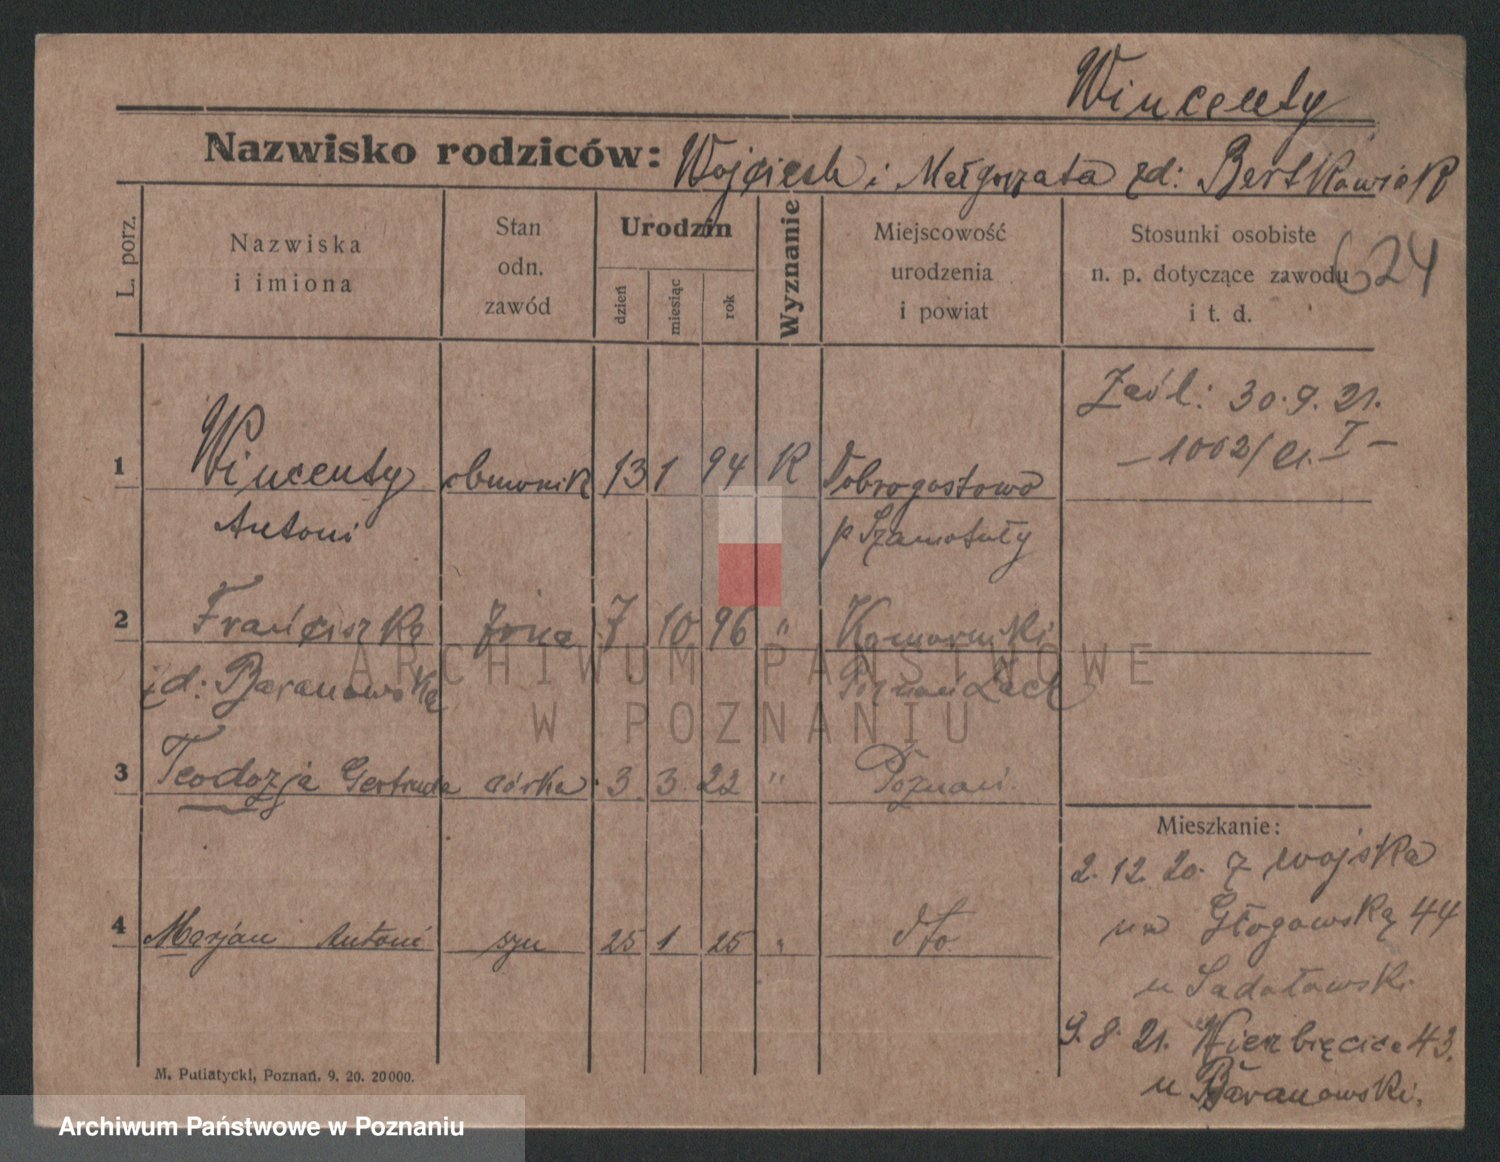 Wincenty
Nazwisko rodziców: Wojciech i Małgorzata zd: Bertkowiak
L. porz.
Nazwiska
i imiona
Stan
odn.
zawód
Urodzin
dzień
miesiąc
rok
Wyznanie
Miejscowość
urodzenia
i powiat
Stosunki osobiste
n. p. dotyczące zawodu
i t. d.
624
Zaśl: 30.9.21.
1002/ I
1 Wincenty 13 1 94 K Dobrogostowo
Antoni p Szamotuły
2 Franciszka żona 7 10 96 " Komorniki
zd: Baranowska Poznań Zach
3 Teodozja Gertruda córka 3 3 22 " Poznań.
4 Marjan Antoni syn 25 1 25 " dto
Mieszkanie:
2. 12. 20. z wojska
na Głogowską 44
u Sadołowski.
9. 8. 21. Wierzbięcice 43.
u Baranowski.
M. Putiatycki, Poznań. 9. 20. 20000.
ARCHIWUM PAŃSTWOWE
W POZNANIU
Archiwum Państwowe w Poznaniu